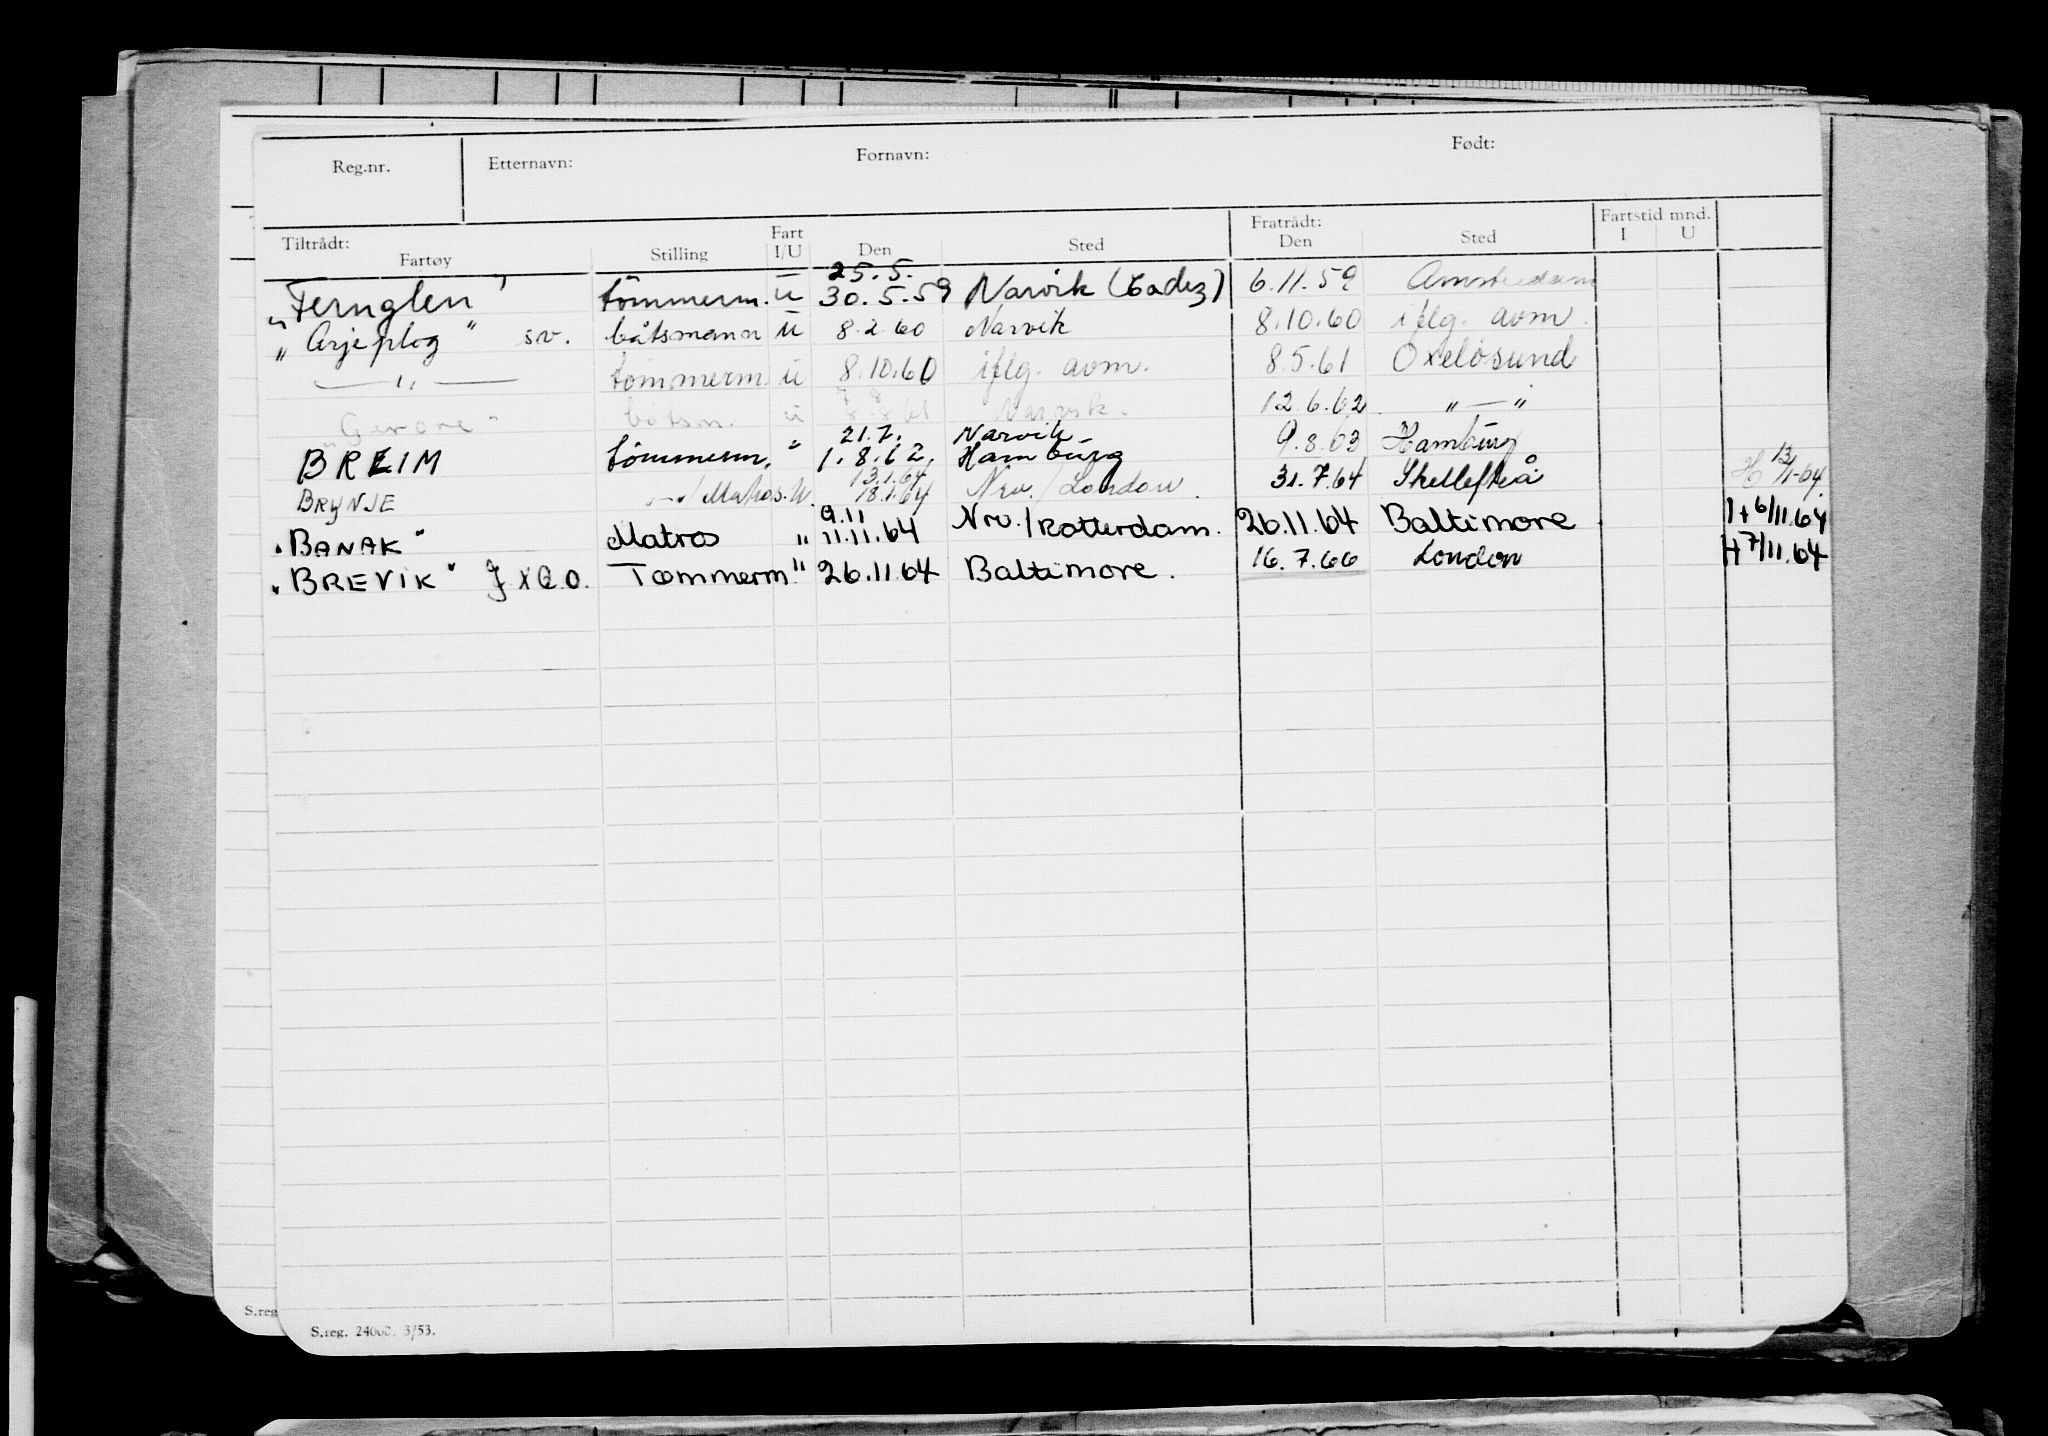 Reg.nr. Etternavn: Fornavn: Født:
Tiltrådt: Fartøy Stilling Fart I/U Den Sted Fratrådt: Den Sted Fartstid mnd. I U
"Fernglen" tömmerm. u 25.5. 30.5.59 Narvik (Cadiz) 6.11.59 Amsterdam
"Arjeplog" sv. båtsmann u 8.2.60 Narvik 8.10.60 iflg. avm.
—"— tömmerm. u 8.10.60 iflg. avm. 8.5.61 Oxelösund
båtsm. u Narvik. 12.6.62 "—"
BREIM tömmerm. " 21.7. 1.8.62. Narvik Hamburg 9.3.63 Hamburg
BRYNJE Matros. U. 13.1.64 18.1.64 Nrv./London. 31.7.64 Skellefteå H 13/1-64.
"BANAK" Matros " 9.11 11.11.64 Nrv./Rotterdam. 26.11.64 Baltimore 6/11.64
"BREVIK" JXQO. Tømmerm. " 26.11.64 Baltimore. 16.7.66 London H 7/11.64
S.reg
S.reg. 24000. 3/53.